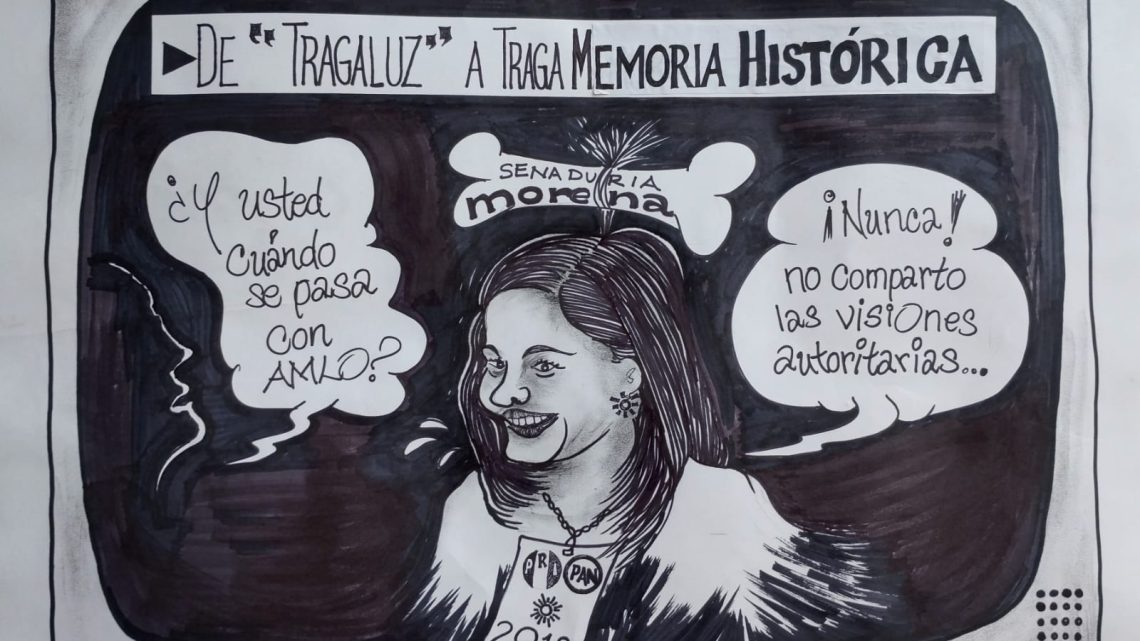 ▶DE "TRAGALUZ" A TRAGA MEMORIA HISTÓRICA
¿Y usted
cuándo
se pasa
con
AMLO?
SENADURIA
morena
¡Nunca!
no comparto
las visiones
autoritarias...
PRI PAN